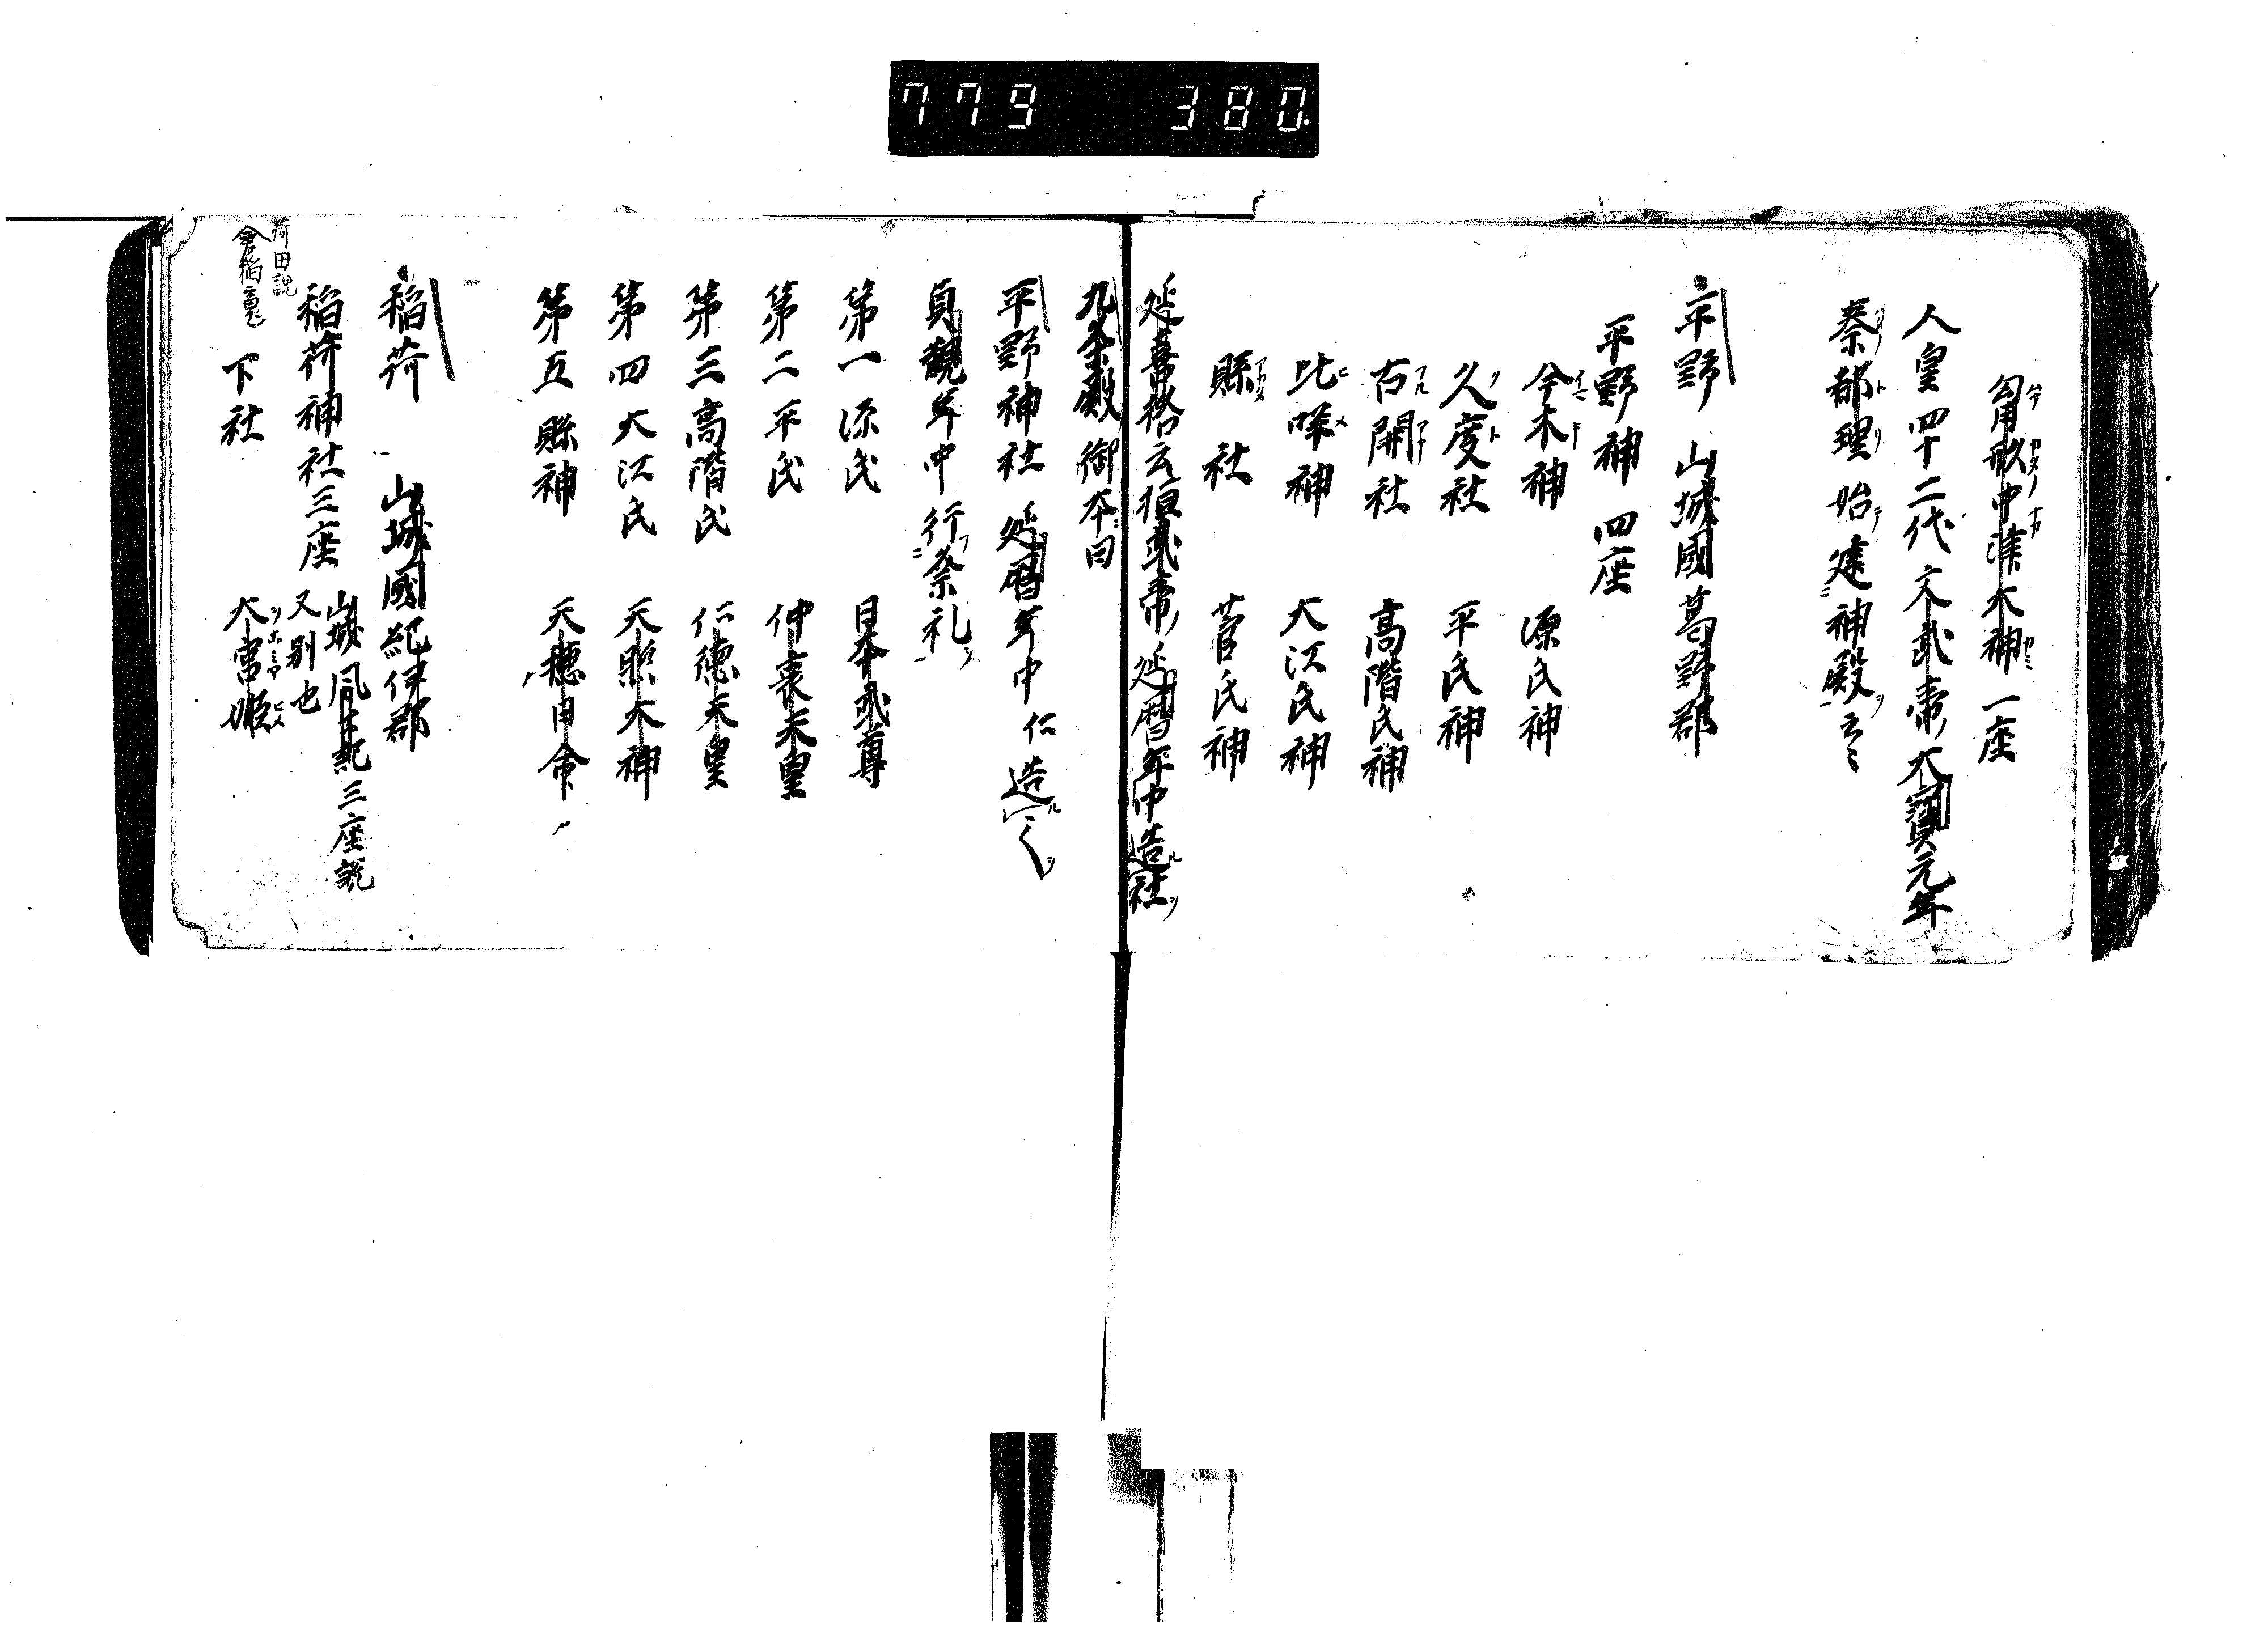 779 380
一座
人皇四十二代文武帝大寶元年
秦都理始建神殿云々
平野 山城國葛野郡
平野神四座
今木神 源氏神
久度社 平氏神
古開社 高階氏神
比咩神 大江氏神
縣社 菅氏神
延喜格云桓武帝延暦年中造社
九条殿御本曰
平野神社延暦年中仁造
貞觀年中行祭礼
第一源氏 日本武尊
第二平氏 仲哀天皇
第三高階氏 仁德天皇
第四大江氏 天照大神
第五縣神 天穗日命
稲荷 山城國紀伊郡
稲荷神社三座 山城風土記三座説
又別也
荷田説
倉稲魂
下社 大宮姫